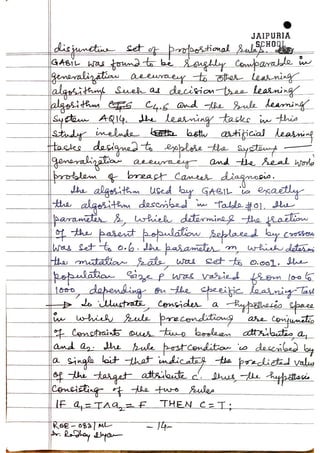 JAIPURIA
SCHOOL
disjunctive set of propositional rules.
GABIL was found to be roughly comparable in
generalization accuracy to other learning
algorithm such as decision-tree learning
algorithm C4.5 and the rule learning
system AQ14. The learning tasks in this
study include both artificial learning
tasks designed to explore the systems
generalization accuracy and the real world
problem of breast cancer diagnosis.
The algorithm used by GABIL is exactly
the algorithm described in Table #01. The
parameter r, which determines the fraction
of the parent population replaced by crossover
was set to 0.6. The parameter m, which determines
the mutation rate, was set to 0.001. The
population size p was varied from 100 to
1000, depending on the specific learning task
To illustrate, consider a hypothesis space
in which rule preconditions are conjunctions
of constraints over two boolean attributes, a1
and a2. The rule postcondition is described by
a single bit that indicates the predicted value
of the target attribute c. Thus the hypothesis
consisting of the two rules
IF a1 = T ∧ a2 = F THEN C = T;
ROB-083|ML -14-
Dr.